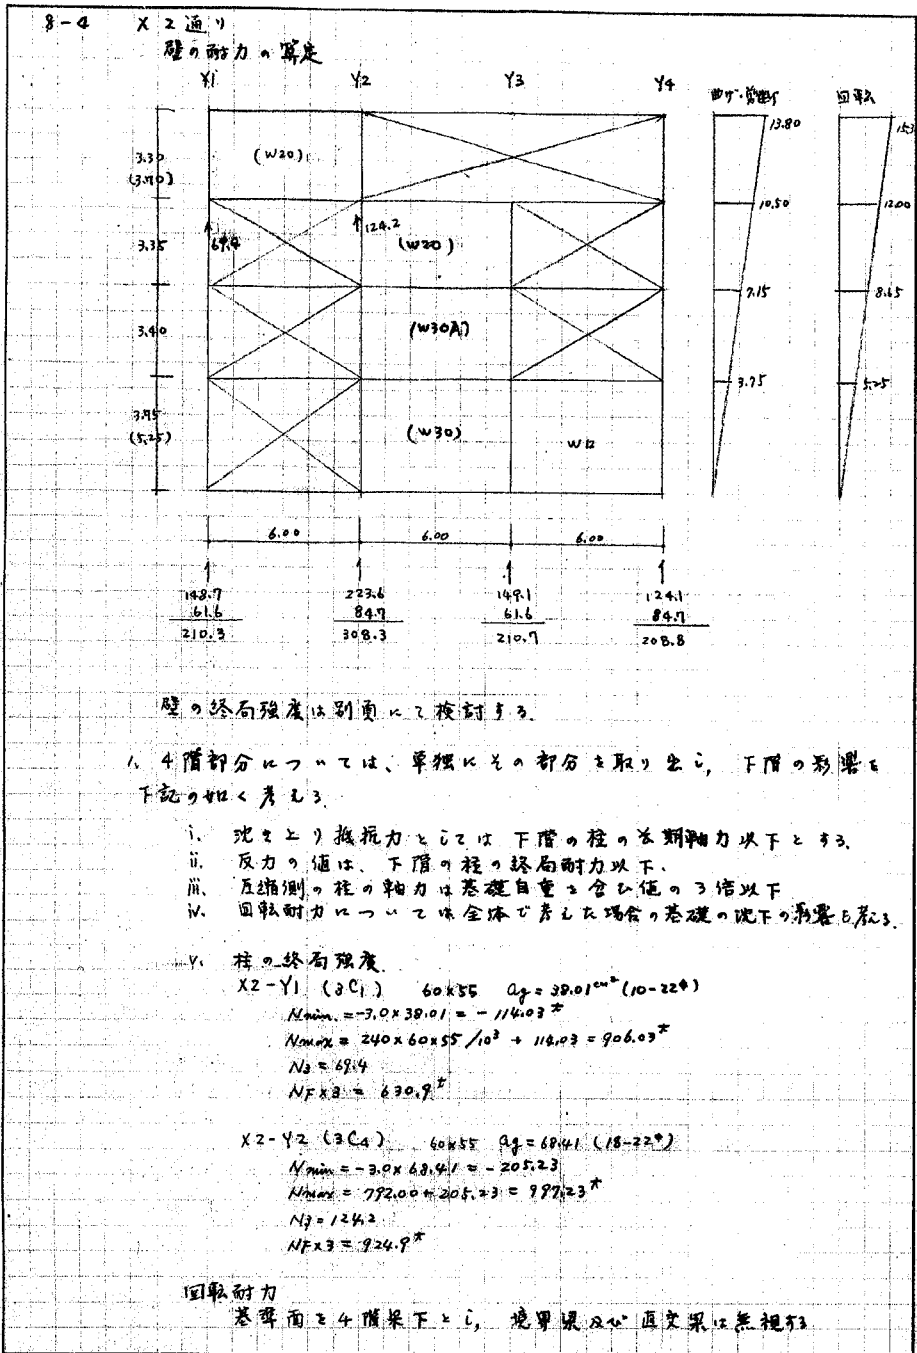 8-4 X2通り
壁の耐力の算定
Y1 Y2 Y3 Y4
曲げ・剪断 回転
3.30
(3.70)
3.35
3.40
3.95
(5.25)
(W20)
69.4
124.2
(W20)
(W30A)
(W30)
W12
13.80
10.50
7.15
3.75
15.3
12.00
8.65
5.25
6.00 6.00 6.00
148.7 223.6 149.1 124.1
61.6 84.7 61.6 84.7
210.3 308.3 210.7 208.8
壁の終局強度は別頁にて検討する.
1. 4階部分については、単独にその部分を取り出し, 下階の影響を
下記の如く考える.
i. 浮き上り抵抗力としては下階の柱の長期軸力以下とする.
ii. 反力の値は、下階の柱の終局耐力以下.
iii. 圧縮側の柱の軸力は基礎自重を含む値の3倍以下
iv. 回転耐力については全体で考えた場合の基礎の沈下の影響も考える.
v. 柱の終局強度.
X2-Y1 (3C1) 60x55 ag = 38.01cm² (10-22φ)
Nmin. = -3.0 x 38.01 = - 114.03t
Nmax = 240 x 60 x 55 /10³ + 114.03 = 906.03t
N3 = 69.4
NF x 3 = 630.9t
X2-Y2 (3C4) 60x55 ag = 68.41 (18-22φ)
Nmin = -3.0 x 68.41 = - 205.23
Nmax = 792.00 + 205.23 = 997.23t
N3 = 124.2
NF x 3 = 924.9t
回転耐力
基準面を4階梁下とし, 境界梁及び直交梁は無視する